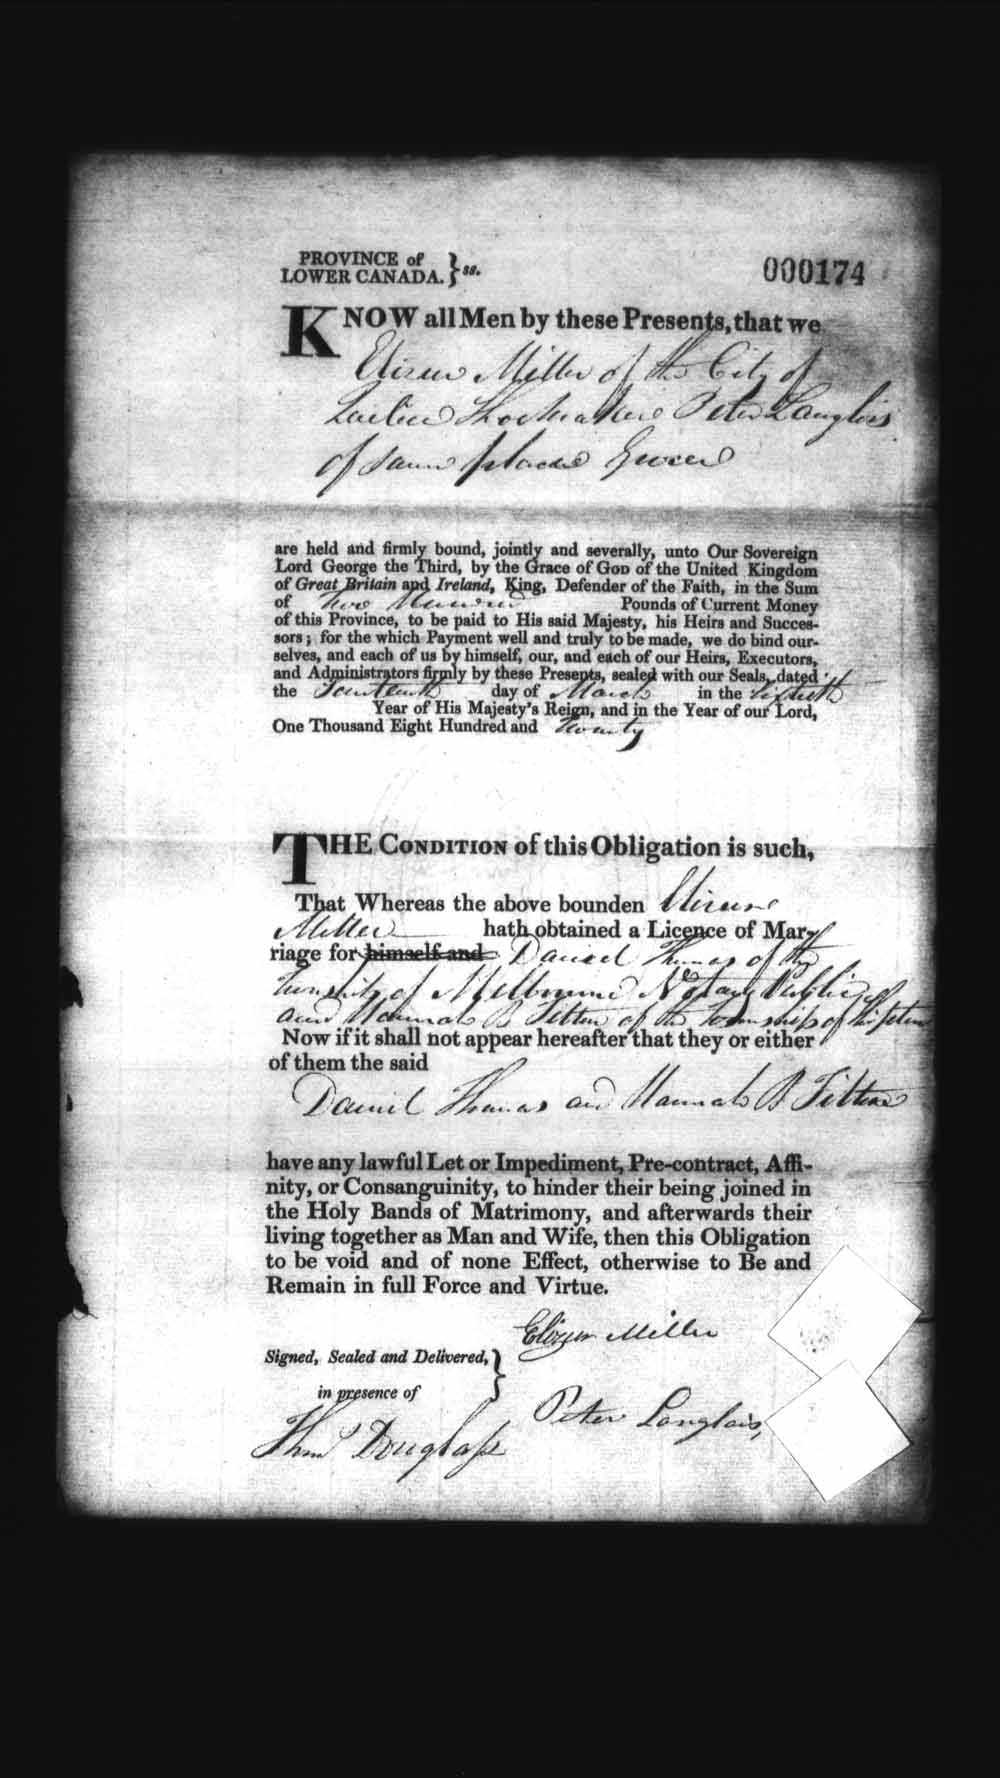 PROVINCE of
LOWER CANADA. } ss.
000174
KNOW all Men by these Presents, that we
Elizur Miller of the City of
Quebec Shoemaker Peter Langlois
of same place Grocer
are held and firmly bound, jointly and severally, unto Our Sovereign
Lord George the Third, by the Grace of GOD of the United Kingdom
of Great Britain and Ireland, King, Defender of the Faith, in the Sum
of Two Hundred Pounds of Current Money
of this Province, to be paid to His said Majesty, his Heirs and Succes-
sors; for the which Payment well and truly to be made, we do bind our-
selves, and each of us by himself, our, and each of our Heirs, Executors,
and Administrators firmly by these Presents, sealed with our Seals, dated
the day of March in the Sixtieth
Year of His Majesty's Reign, and in the Year of our Lord,
One Thousand Eight Hundred and Twenty
THE CONDITION of this Obligation is such,
That Whereas the above bounden
Miller hath obtained a Licence of Mar-
riage for himself and Daniel Thomas of the
Township of Melbourne Notary Public
and Hannah B Tilton of the Township of Shipton
Now if it shall not appear hereafter that they or either
of them the said
Daniel Thomas and Hannah B Tilton
have any lawful Let or Impediment, Pre-contract, Affi-
nity, or Consanguinity, to hinder their being joined in
the Holy Bands of Matrimony, and afterwards their
living together as Man and Wife, then this Obligation
to be void and of none Effect, otherwise to Be and
Remain in full Force and Virtue.
Elizur Miller
Signed, Sealed and Delivered, }
in presence of
Peter Langlois,
Thos Douglass